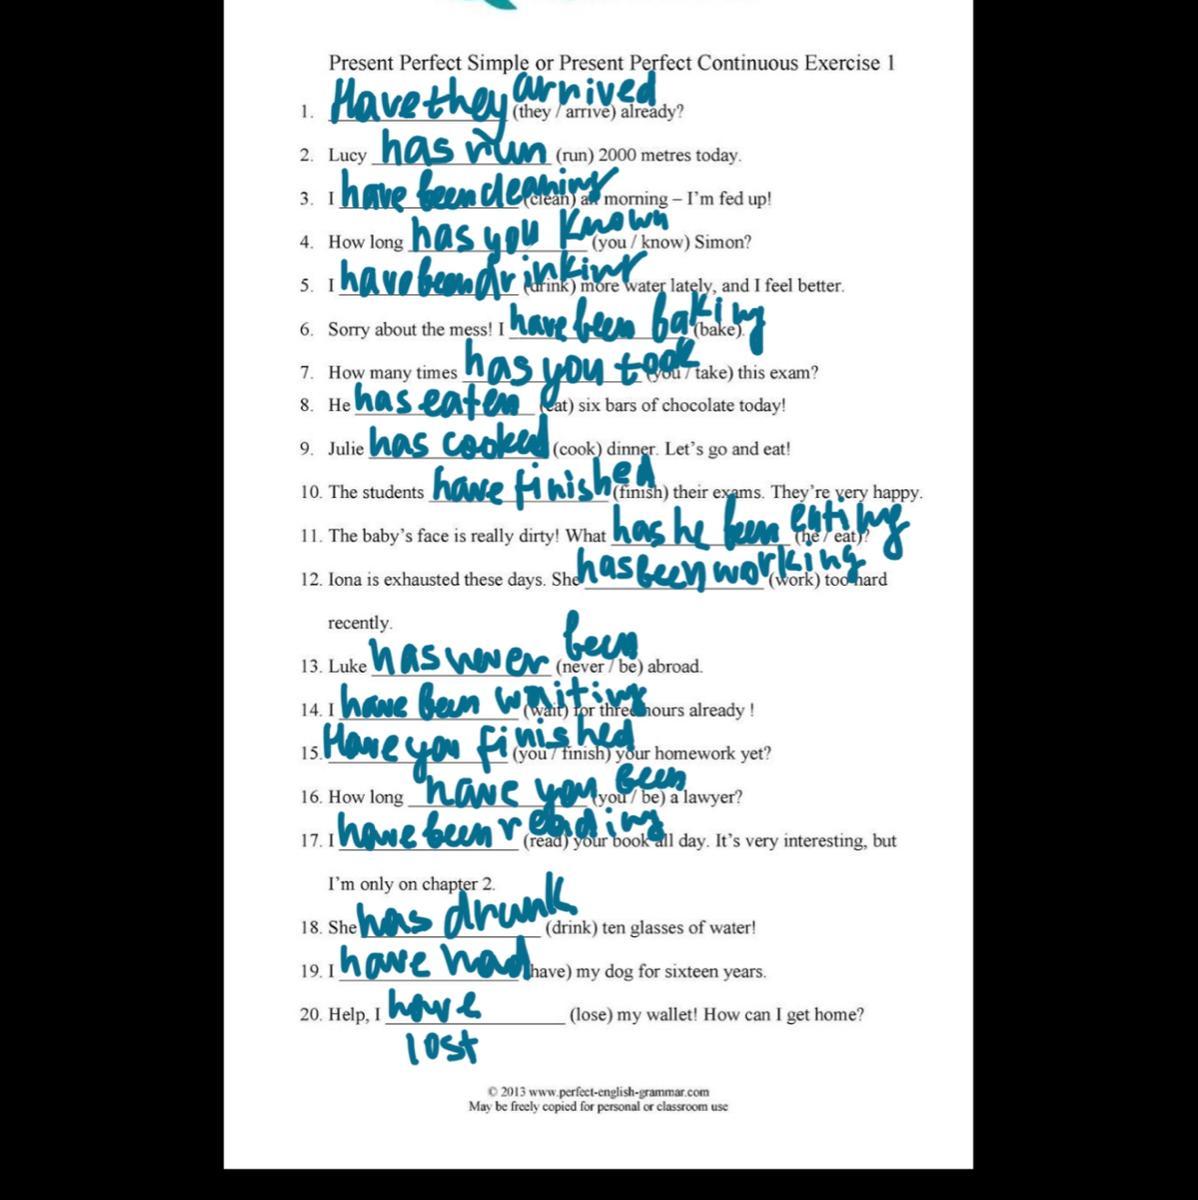 Present Perfect Simple or Present Perfect Continuous Exercise 1
1. Have they arrived (they / arrive) already?
2. Lucy has run (run) 2000 metres today.
3. I have been cleaning (clean) all morning – I'm fed up!
4. How long has you known (you / know) Simon?
5. I have been drinking (drink) more water lately, and I feel better.
6. Sorry about the mess! I have been baking (bake).
7. How many times has you took (you / take) this exam?
8. He has eaten (eat) six bars of chocolate today!
9. Julie has cooked (cook) dinner. Let's go and eat!
10. The students have finished (finish) their exams. They're very happy.
11. The baby's face is really dirty! What has he been eating (he / eat)?
12. Iona is exhausted these days. She has been working (work) too hard
recently.
13. Luke has never been (never / be) abroad.
14. I have been waiting (wait) for three hours already !
15. Have you finished (you / finish) your homework yet?
16. How long have you been (you / be) a lawyer?
17. I have been reading (read) your book all day. It's very interesting, but
I'm only on chapter 2.
18. She has drunk (drink) ten glasses of water!
19. I have had (have) my dog for sixteen years.
20. Help, I have lost (lose) my wallet! How can I get home?
© 2013 www.perfect-english-grammar.com
May be freely copied for personal or classroom use